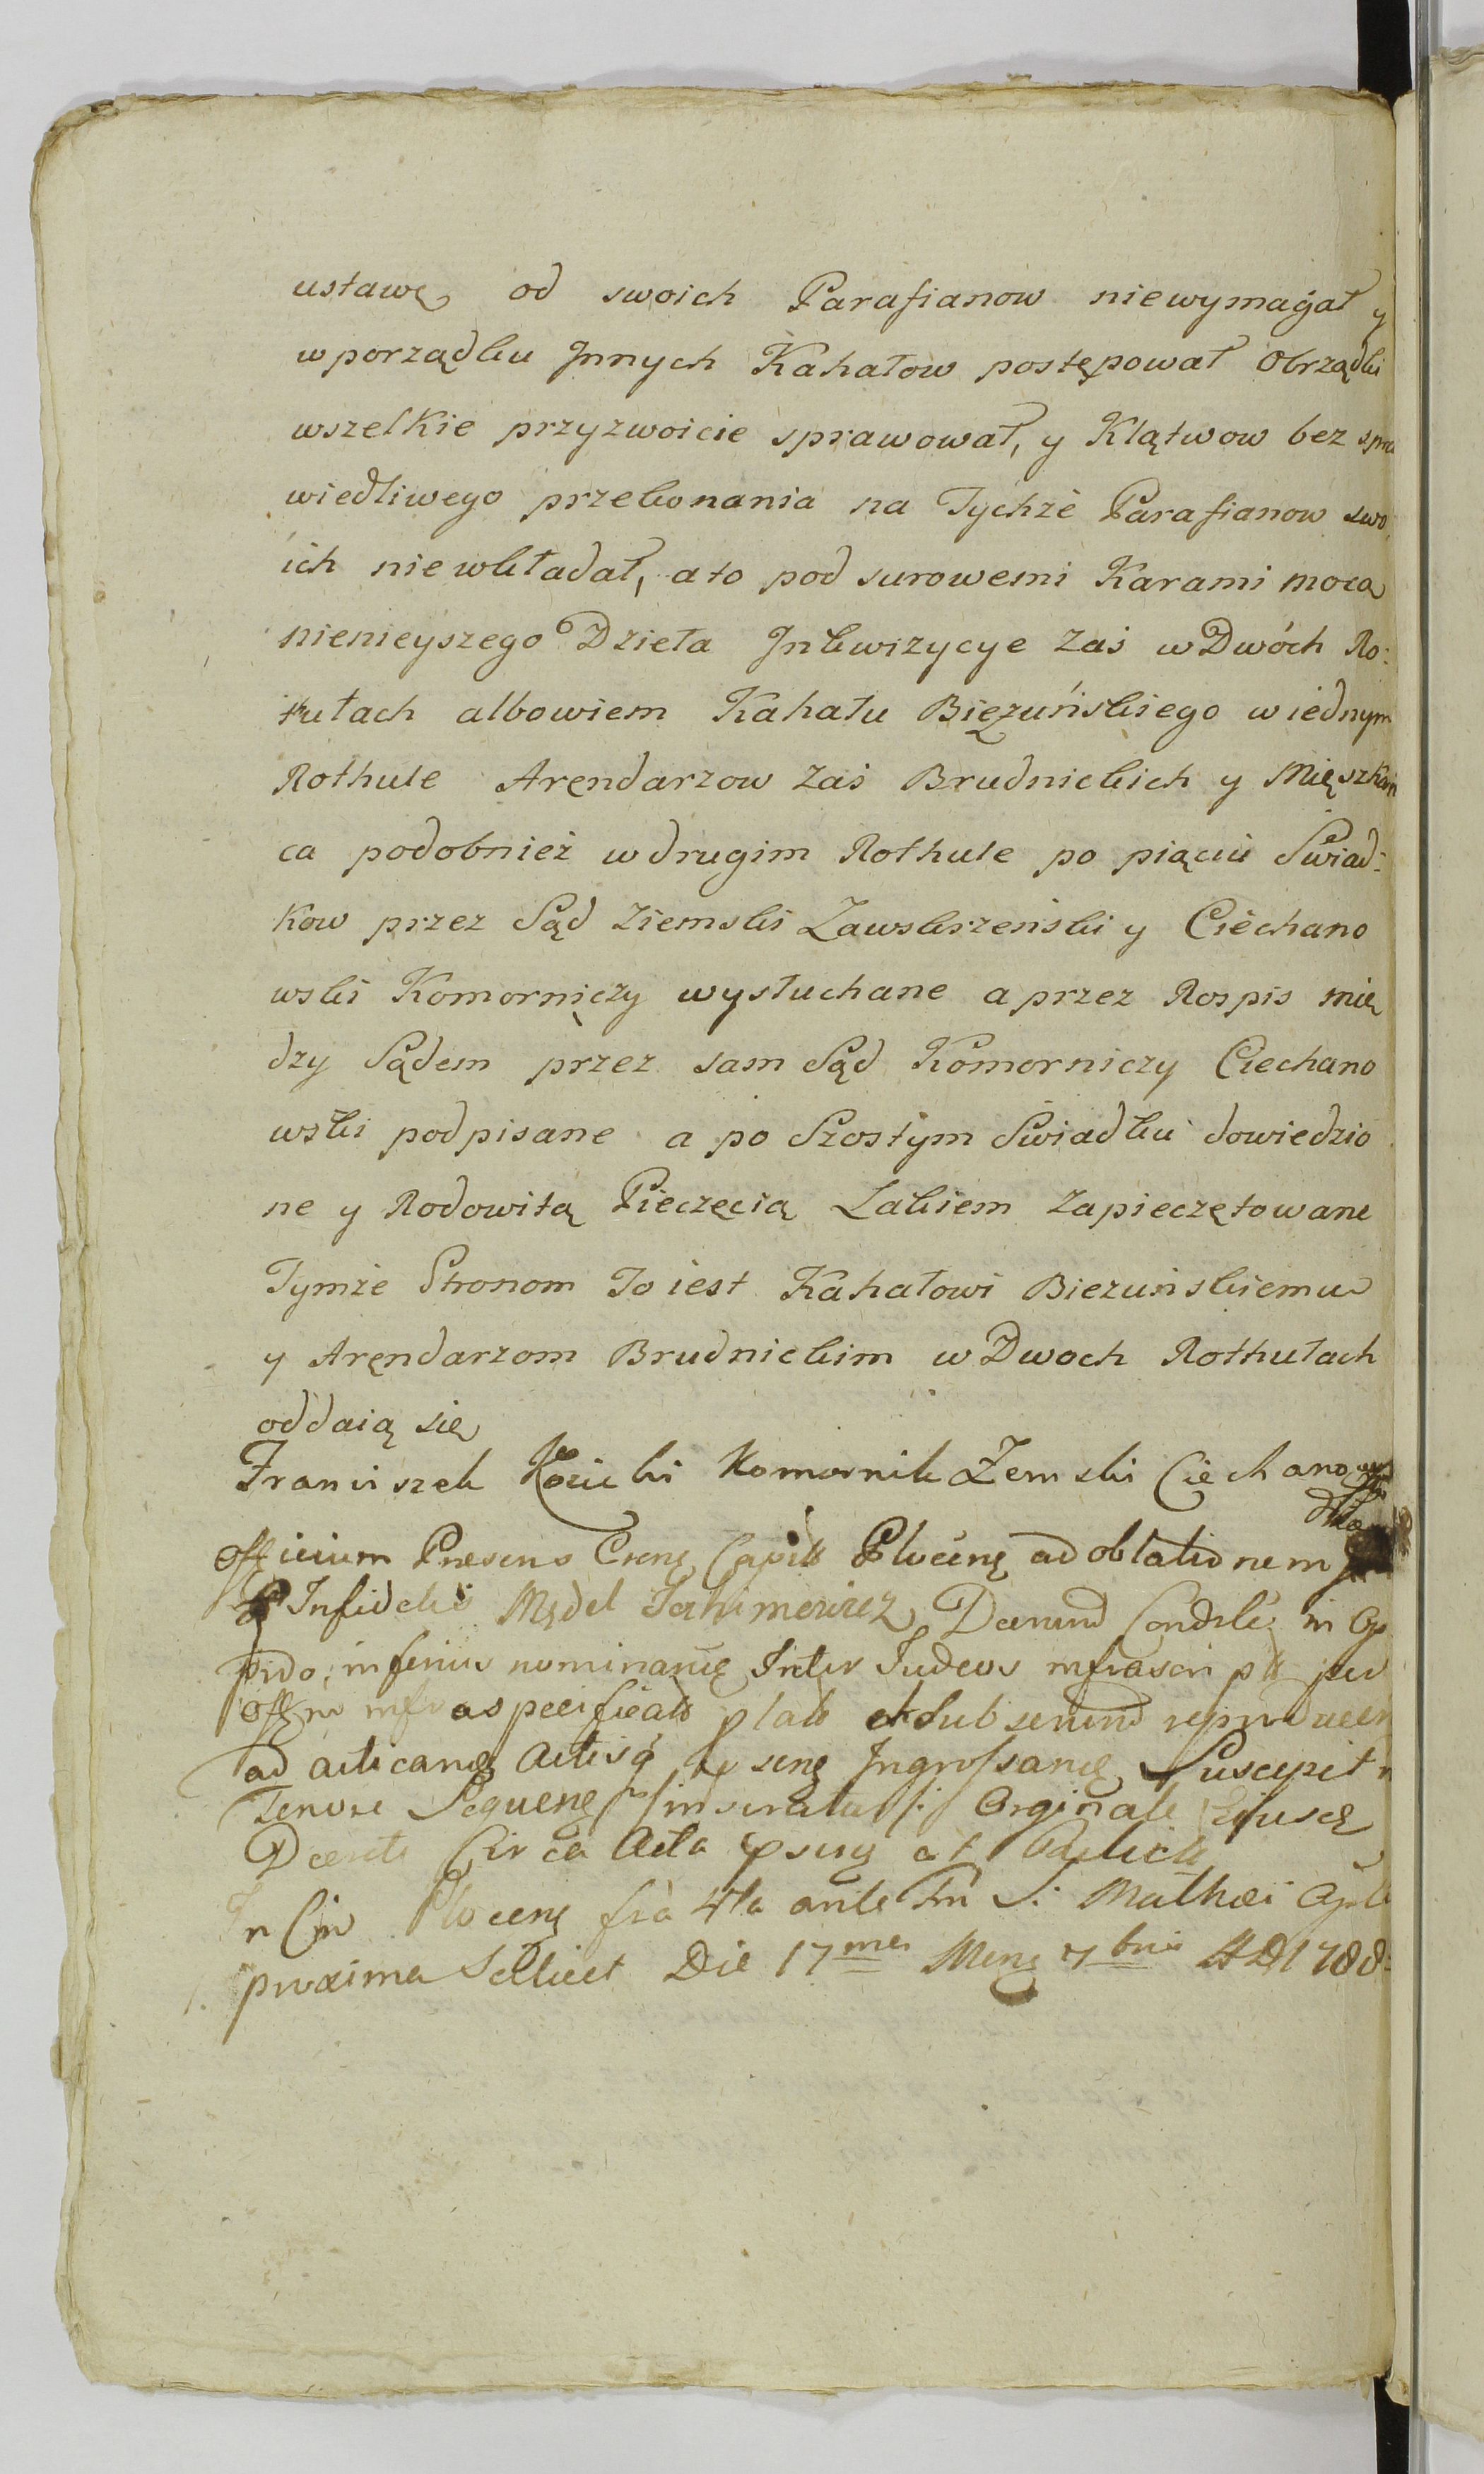 ustawę od swoich Parafianow niewymagał y
w porządku Jnnych Kahałow postępował Obrządki
wszelkie przyzwoicie sprawował, y Klątwow bez spra
wiedliwego przekonania na Tychże Parafianow swo
ich niewkładał, a to pod surowemi Karami mocą
nienieyszego Dzieła Jnkwizycye zaś w Dwóch Ro:
tułach albowiem Kahału Bieżuńskiego w iednym
Rothule Aręndarzow zaś Brudnickich y Mięszkań
ca podobnież w drugim Rothule po piąciu Swiad:
kow przez Sąd Ziemski Zawskrzeński y Ciechano
wski Komorniczy wysłuchane a przez Rospis mię
dzy Sądem przez sam Sąd Komorniczy Ciechano
wski podpisane a po Szostym Swiadku dowiedzio
ne y Rodowitą Pieczęcią Lakiem zapieczętowane
Tymże Stronom To iest Kahałowi Bieżuńskiemu
y Aręndarzom Brudnickim w Dwoch Rothułach
oddaią się
Franciszek Komornik Zemski Ciechanows
Officium Presens Capit Plocenę ad oblationem
Infidelis Mędel in Op
pido, inferius nominanę Inter Judeos infrascrip per
Offm infra specificat lat et Subsenend
ad acticanę Actisq Ingrossanę Suscepit
Tenore Sequenę Orginale Ejuscę
Circa Acta
In Plocenę fra 4ta ante Fm S. Mathæi Apli
proxima Scilicet Die 17mes Menę 7bris AD 1788: